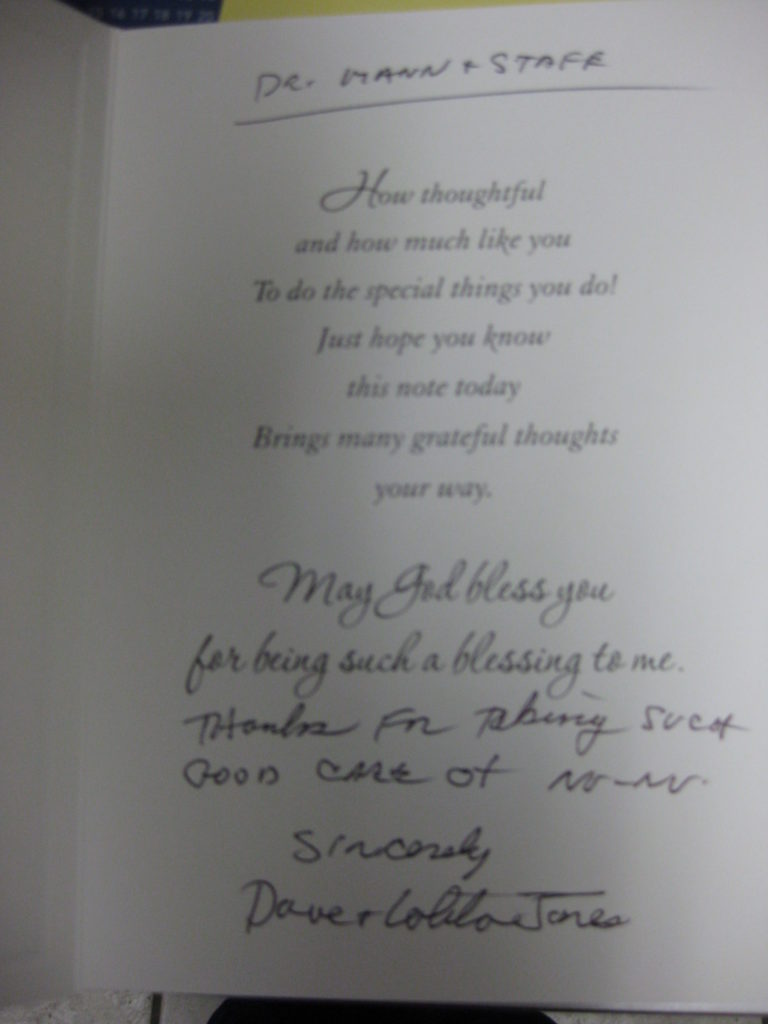 16 17 18 19 20
DR. MANN + STAFF
How thoughtful
and how much like you
To do the special things you do!
Just hope you know
this note today
Brings many grateful thoughts
your way.
May God bless you
for being such a blessing to me.
Thanks For Taking SUCH
GOOD CARE OF
Sincerely
Dave + Jones